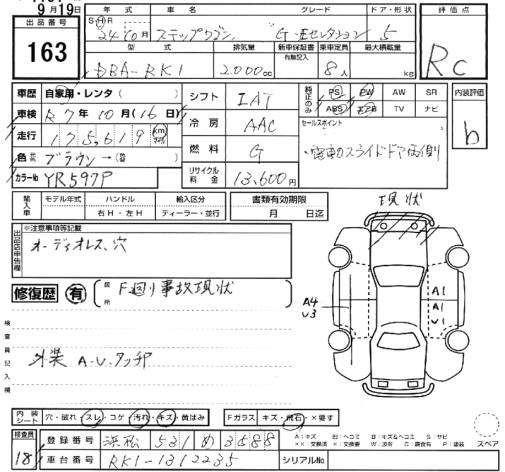 9月19日
出品番号
163
年式 車名 グレード ドア・形状
SHR
24年10月 ステップワゴン G・Eセレクション 5
型式 排気量 新車保証書 有無記入 乗車定員 最大積載量
DBA-RK1 2000cc 8人 kg
評価点
RC
車歴 自家用・レンタ
車検 R7年10月(16日)
走行 175,619 km
色 ブラウン→
カラーNo YR597P
シフト IAT
冷房 AAC
燃料 G
リサイクル料金 13,600円
純正のみ PS PW AW SR
ABS エアB TV ナビ
セールスポイント
・電動スライドドア両側
内装評価
b
輸入車 モデル年式 ハンドル 輸入区分
右H・左H ディーラー・並行
書類有効期限
月 日迄
現状
出品店申告欄 ※注意事項等記載
オーディオレス、穴
修復歴 有 箇所 F廻り事故現状
検査員記入欄
外装 A.U.タッチ印
A4
U3
A1
A1
U1
内装シート 穴・破れ・スレ・コゲ・汚れ・キズ・黄ばみ Fガラス キズ・飛石・×要す
A:キズ U:ヘコミ B:キズ&ヘコミ S:サビ
××:交換済 ×:要交換 W:波有 C:腐食有 P:塗装
スペア
検査員
18
登録番号 浜松 531 め 3588
車台番号 RK1-1312235 シリアルNo